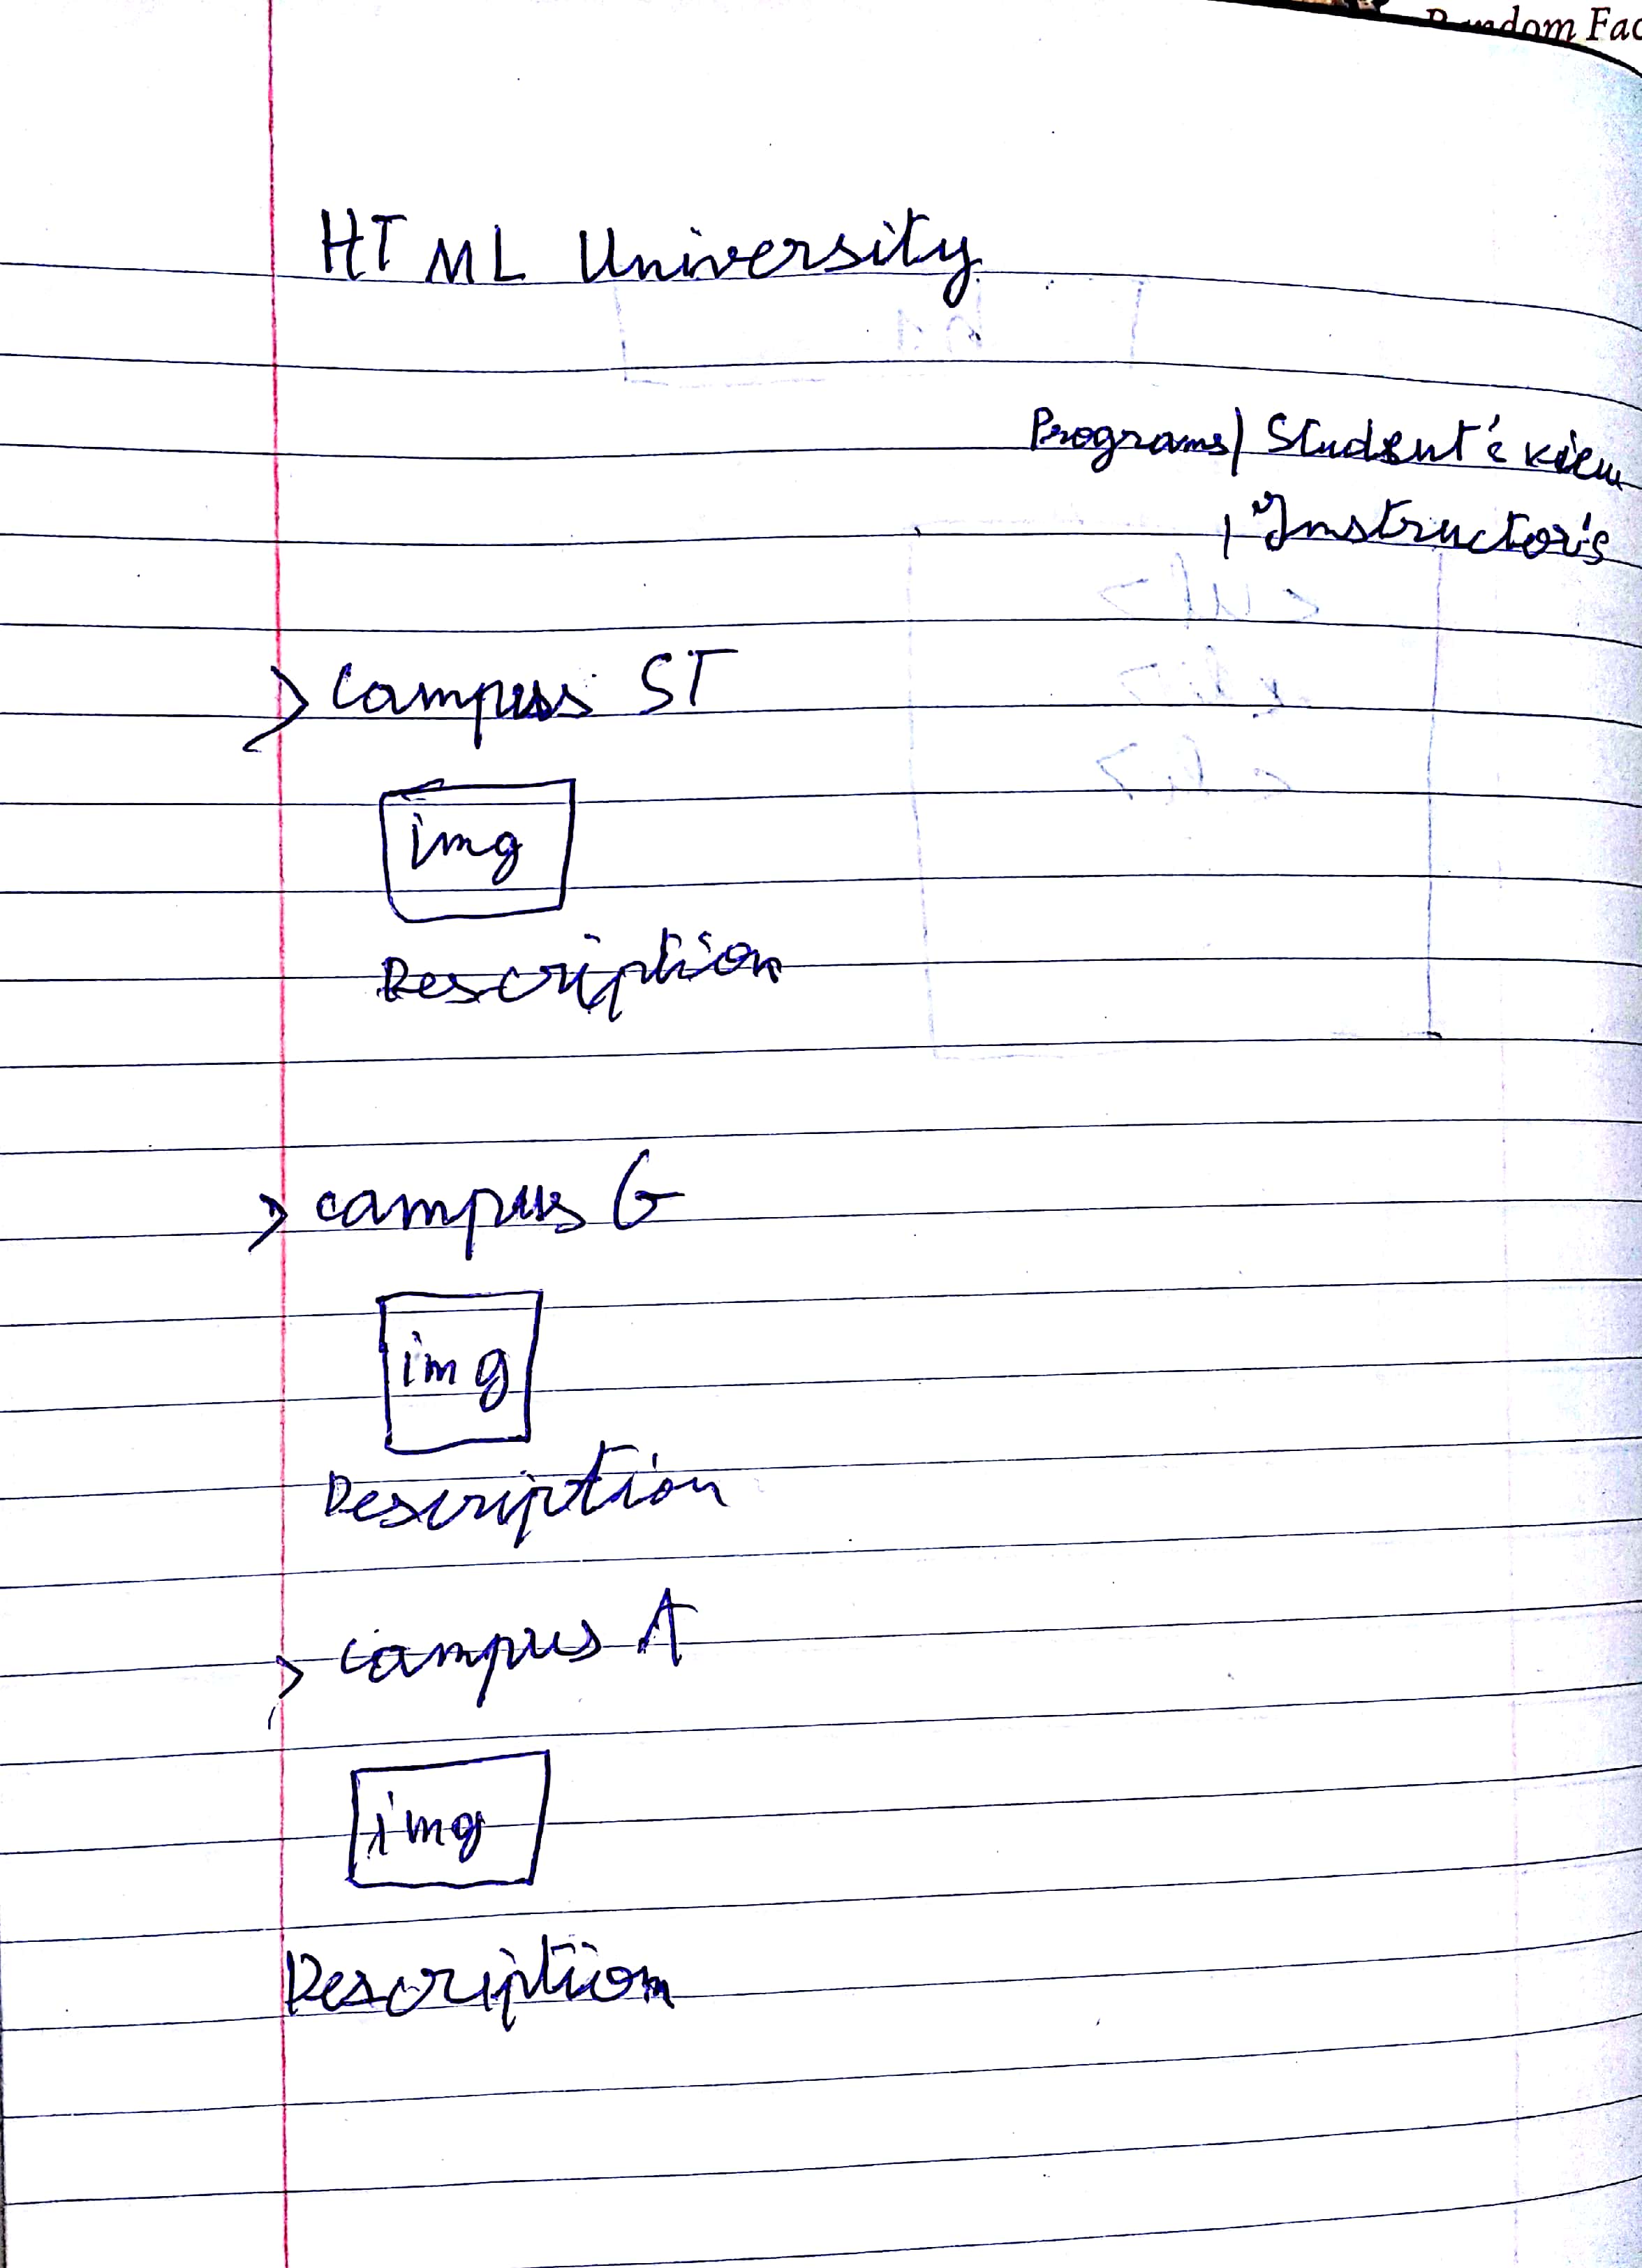 Random Fac
HTML University
Programs | Student's view
| Instructor's
> Campus ST
img
Description
> campus G
img
Description
> campus A
img
Description